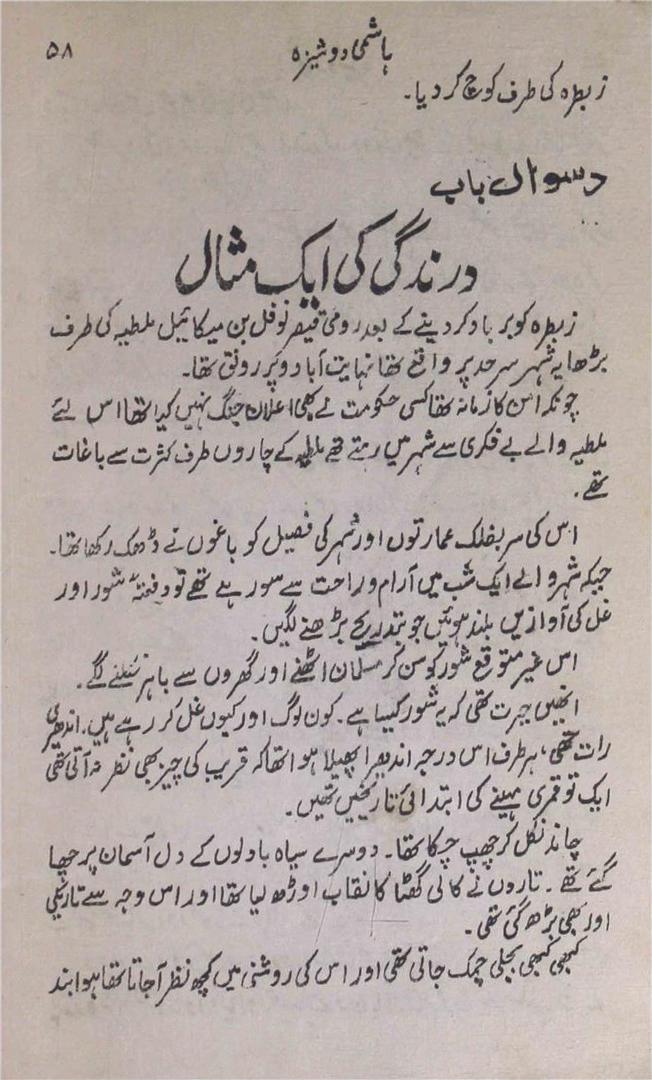 ہاشمی دوشیزہ ۵۸
زبطرہ کی طرف کوچ کر دیا۔
دسواں باب
درندگی کی ایک مثال
زبطرہ کو برباد کر دینے کے بعد رومی قیصر نوفل بن میکائیل ملطیہ کی طرف
بڑھا یہ شہر سرحد پر واقع تھا نہایت آباد و پر رونق تھا۔
چونکہ امن کا زمانہ تھا کسی حکومت نے بھی اعلان جنگ نہیں کیا تھا اس لئے
ملطیہ والے بے فکری سے شہر میں رہتے تھے ملطیہ کے چاروں طرف کثرت سے باغات
تھے۔
اس کی سر بفلک عمارتوں اور شہر کی فصیل کو باغوں نے ڈھک رکھا تھا۔
جبکہ شہر والے ایک شب میں آرام و راحت سے سو رہے تھے تو دفعتہً شور اور
غل کی آوازیں بلند ہوئیں جو بتدریج بڑھنے لگیں۔
اس غیر متوقع شور کو سن کر مسلمان اٹھنے اور گھروں سے باہر نکلنے لگے۔
انھیں حیرت تھی کہ یہ شور کیسا ہے۔ کون لوگ اور کیوں غل کر رہے ہیں۔ اندھیری
رات تھی، ہر طرف اس درجہ اندھیرا پھیلا ہوا تھا کہ قریب کی چیز بھی نظر نہ آتی تھی
ایک تو قمری مہینے کی ابتدائی تاریخیں تھیں۔
چاند نکل کر چھپ چکا تھا۔ دوسرے سیاہ بادلوں کے دل آسمان پر چھا
گئے تھے۔ تاروں نے کالی گھٹا کا نقاب اوڑھ لیا تھا اور اس وجہ سے تاریکی
اور بھی بڑھ گئی تھی۔
کبھی کبھی بجلی چمک جاتی تھی اور اس کی روشنی میں کچھ نظر آ جاتا تھا ہوا بند